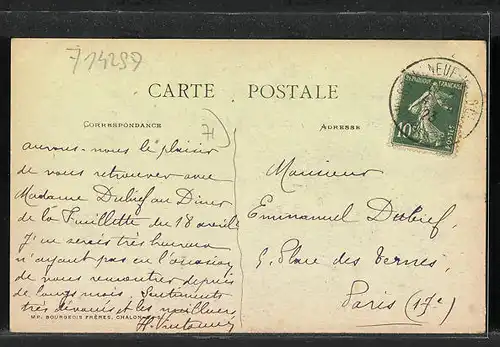 714297
CARTE POSTALE
CORRESPONDANCE
ADRESSE
71
REPUBLIQUE FRANÇAISE
10c POSTES
aurons-nous le plaisir
de vous retrouver avec
Madame Dubief au Diner
de la Feuillette du 18 avril
J'en serais très heureux
n'ayant pas eu l'occasion
de vous rencontrer depuis
de longs mois. Sentiments
très dévoués et les meilleurs
MP. BOURGEOIS FRÈRES, CHALON
Monsieur
Emmanuel Dubief
5, Place des Ternes,
Paris (17e)